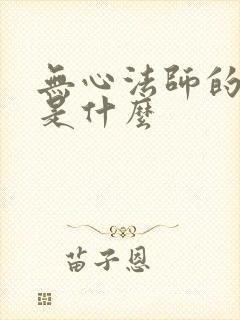 無心法師的
是什麼
苗子恩